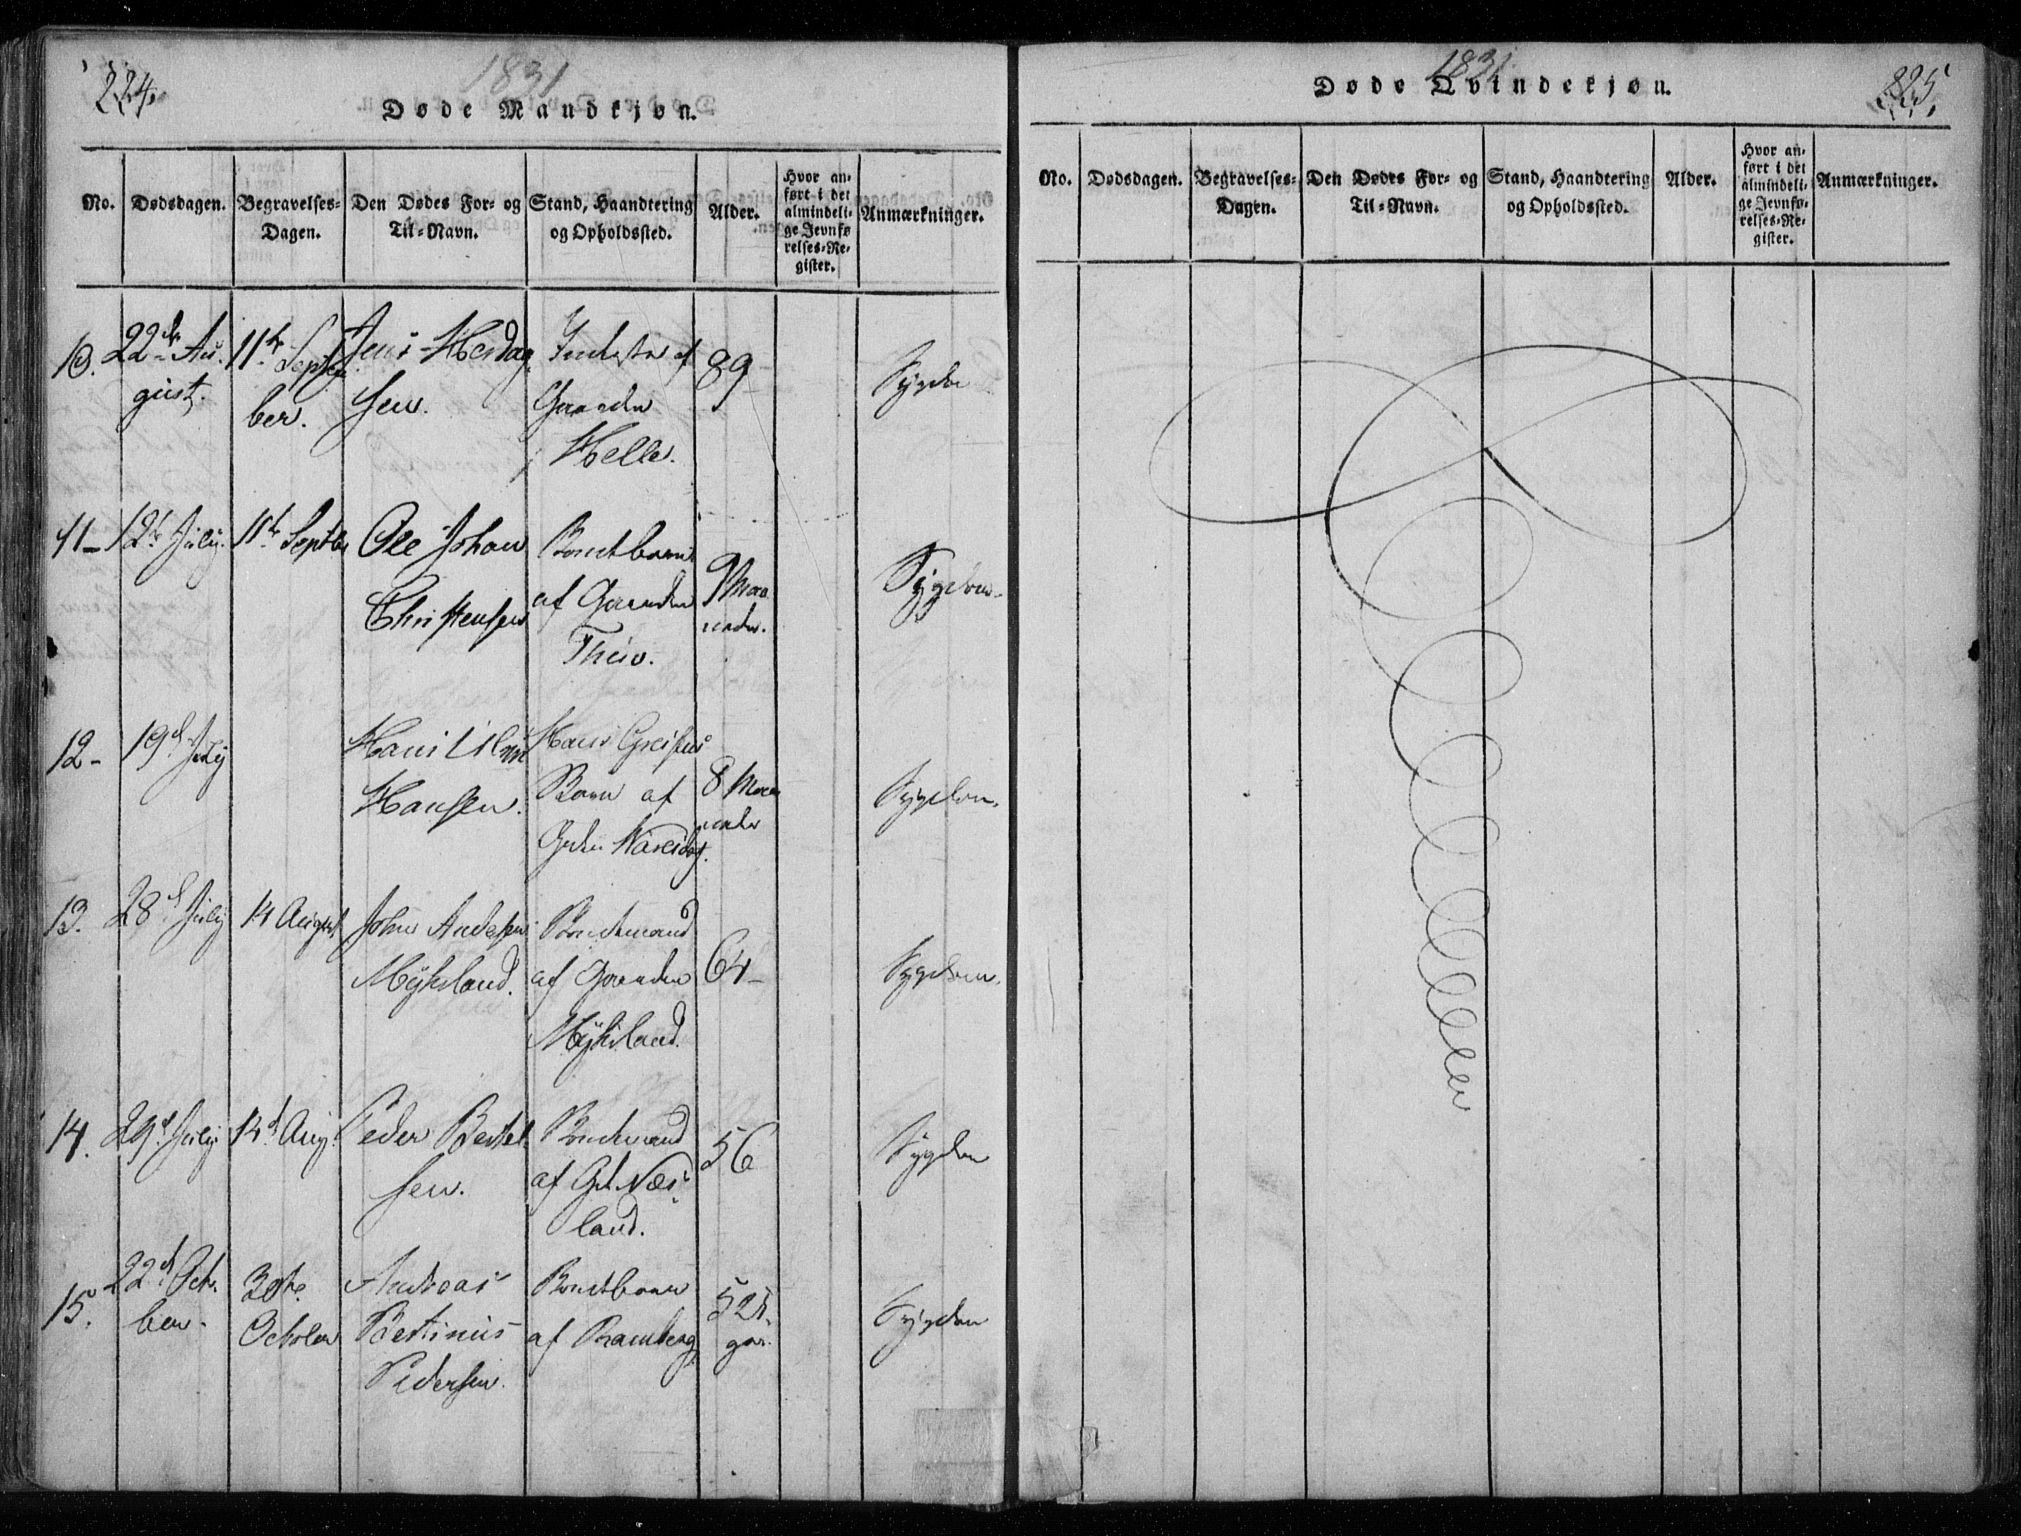 224.
1831
Døde Mandkjøn.
No.
Dødsdagen.
Begravelses-
Dagen.
Den Dødes For- og
Til-Navn.
Stand, Haandtering
og Opholdssted.
Alder.
Hvor an-
ført i det
almindeli-
ge Jevnfø
relses-Re-
gister.
Anmærkninger.
10.
22de Au-
gust.
11te Septem
ber.
Jens
sen.
af
Gaarden
Helle.
89
Sygdom
11-
12te July.
11te Septbr
Ole Johan
Christensen
Bondebarn
af Gaarden
9 Maa
neder.
Sygdom.
12-
19de July
Hansen.
Hans
Barn af
8 Maa
neder
Sygdom.
13.
28de July
14 August
John Andersen
Myksland.
Bondemand
af Gaarden
Myksland.
64-
Sygdom.
14.
29de July
14de Aug.
Peder Bertel
sen.
Bondemand
af Gd. Næs-
land.
56
Sygdom
15.
22de Octo
ber.
30te
October
Andreas
Bertinus
Pedersen.
Bondebarn
af Ramberg
Sygdom
1831
Døde Qvindekjøn.
225.
No.
Dødsdagen.
Begravelses-
Dagen.
Den Dødes For- og
Til-Navn.
Stand, Haandtering
og Opholdssted.
Alder.
Hvor an-
ført i det
almindeli-
ge Jevnfø-
relses-Re-
gister.
Anmærkninger.